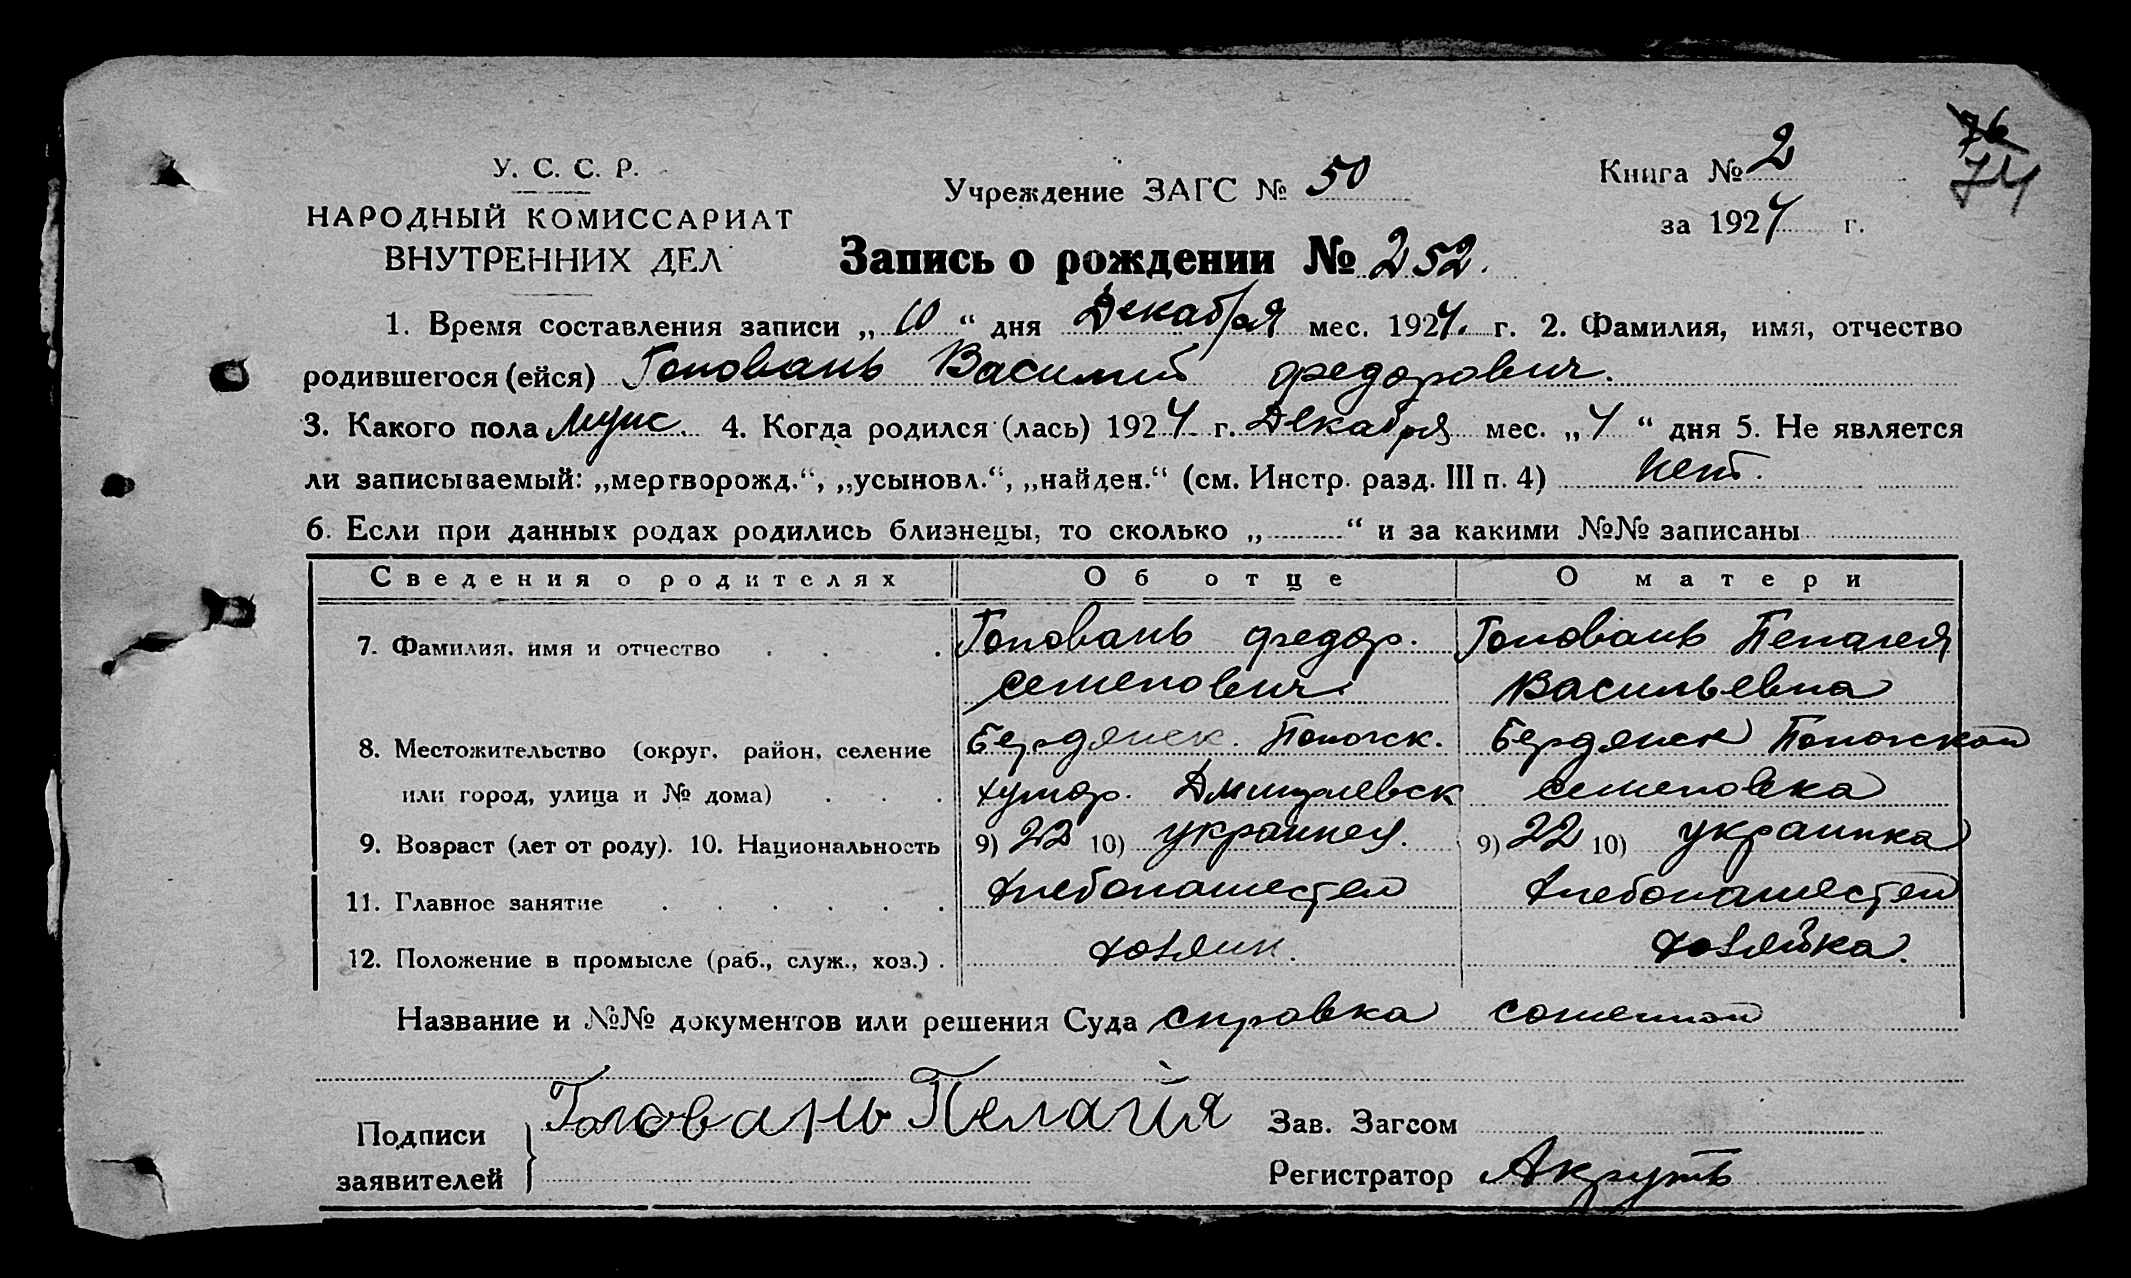 У. С. С. Р.
НАРОДНЫЙ КОМИССАРИАТ
ВНУТРЕННИХ ДЕЛ
Учреждение ЗАГС № 50
Книга № 2
за 1924 г.
76
74
Запись о рождении № 252.
1. Время составления записи „10“ дня Декабря мес. 1924. г. 2. Фамилия, имя, отчество
родившегося (ейся) Головань Василий Федорович.
3. Какого пола Мужс. 4. Когда родился (лась) 1924 г. Декабря мес. „4“ дня 5. Не является
ли записываемый: „мертворожд.“, „усыновл.“, „найден.“ (см. Инстр. разд. III п. 4) нет.
6. Если при данных родах родились близнецы, то сколько „ “ и за какими №№ записаны
Сведения о родителях Об отце О матери
7. Фамилия, имя и отчество Головань Федор. Головань Пелагея
Семенович Васильевна
8. Местожительство (округ, район, селение Бердянск. Пологск. Бердянск Пологской
или город, улица и № дома) хутор. Семеновка
9. Возраст (лет от роду). 10. Национальность 9) 22 10) украинец. 9) 22 10) украинка
11. Главное занятие хлебопашество хлебопашество
12. Положение в промысле (раб., служ., хоз.) хозяин. хозяйка.
Название и №№ документов или решения Суда справка
Подписи
заявителей
Головань Пелагия
Зав. Загсом
Регистратор